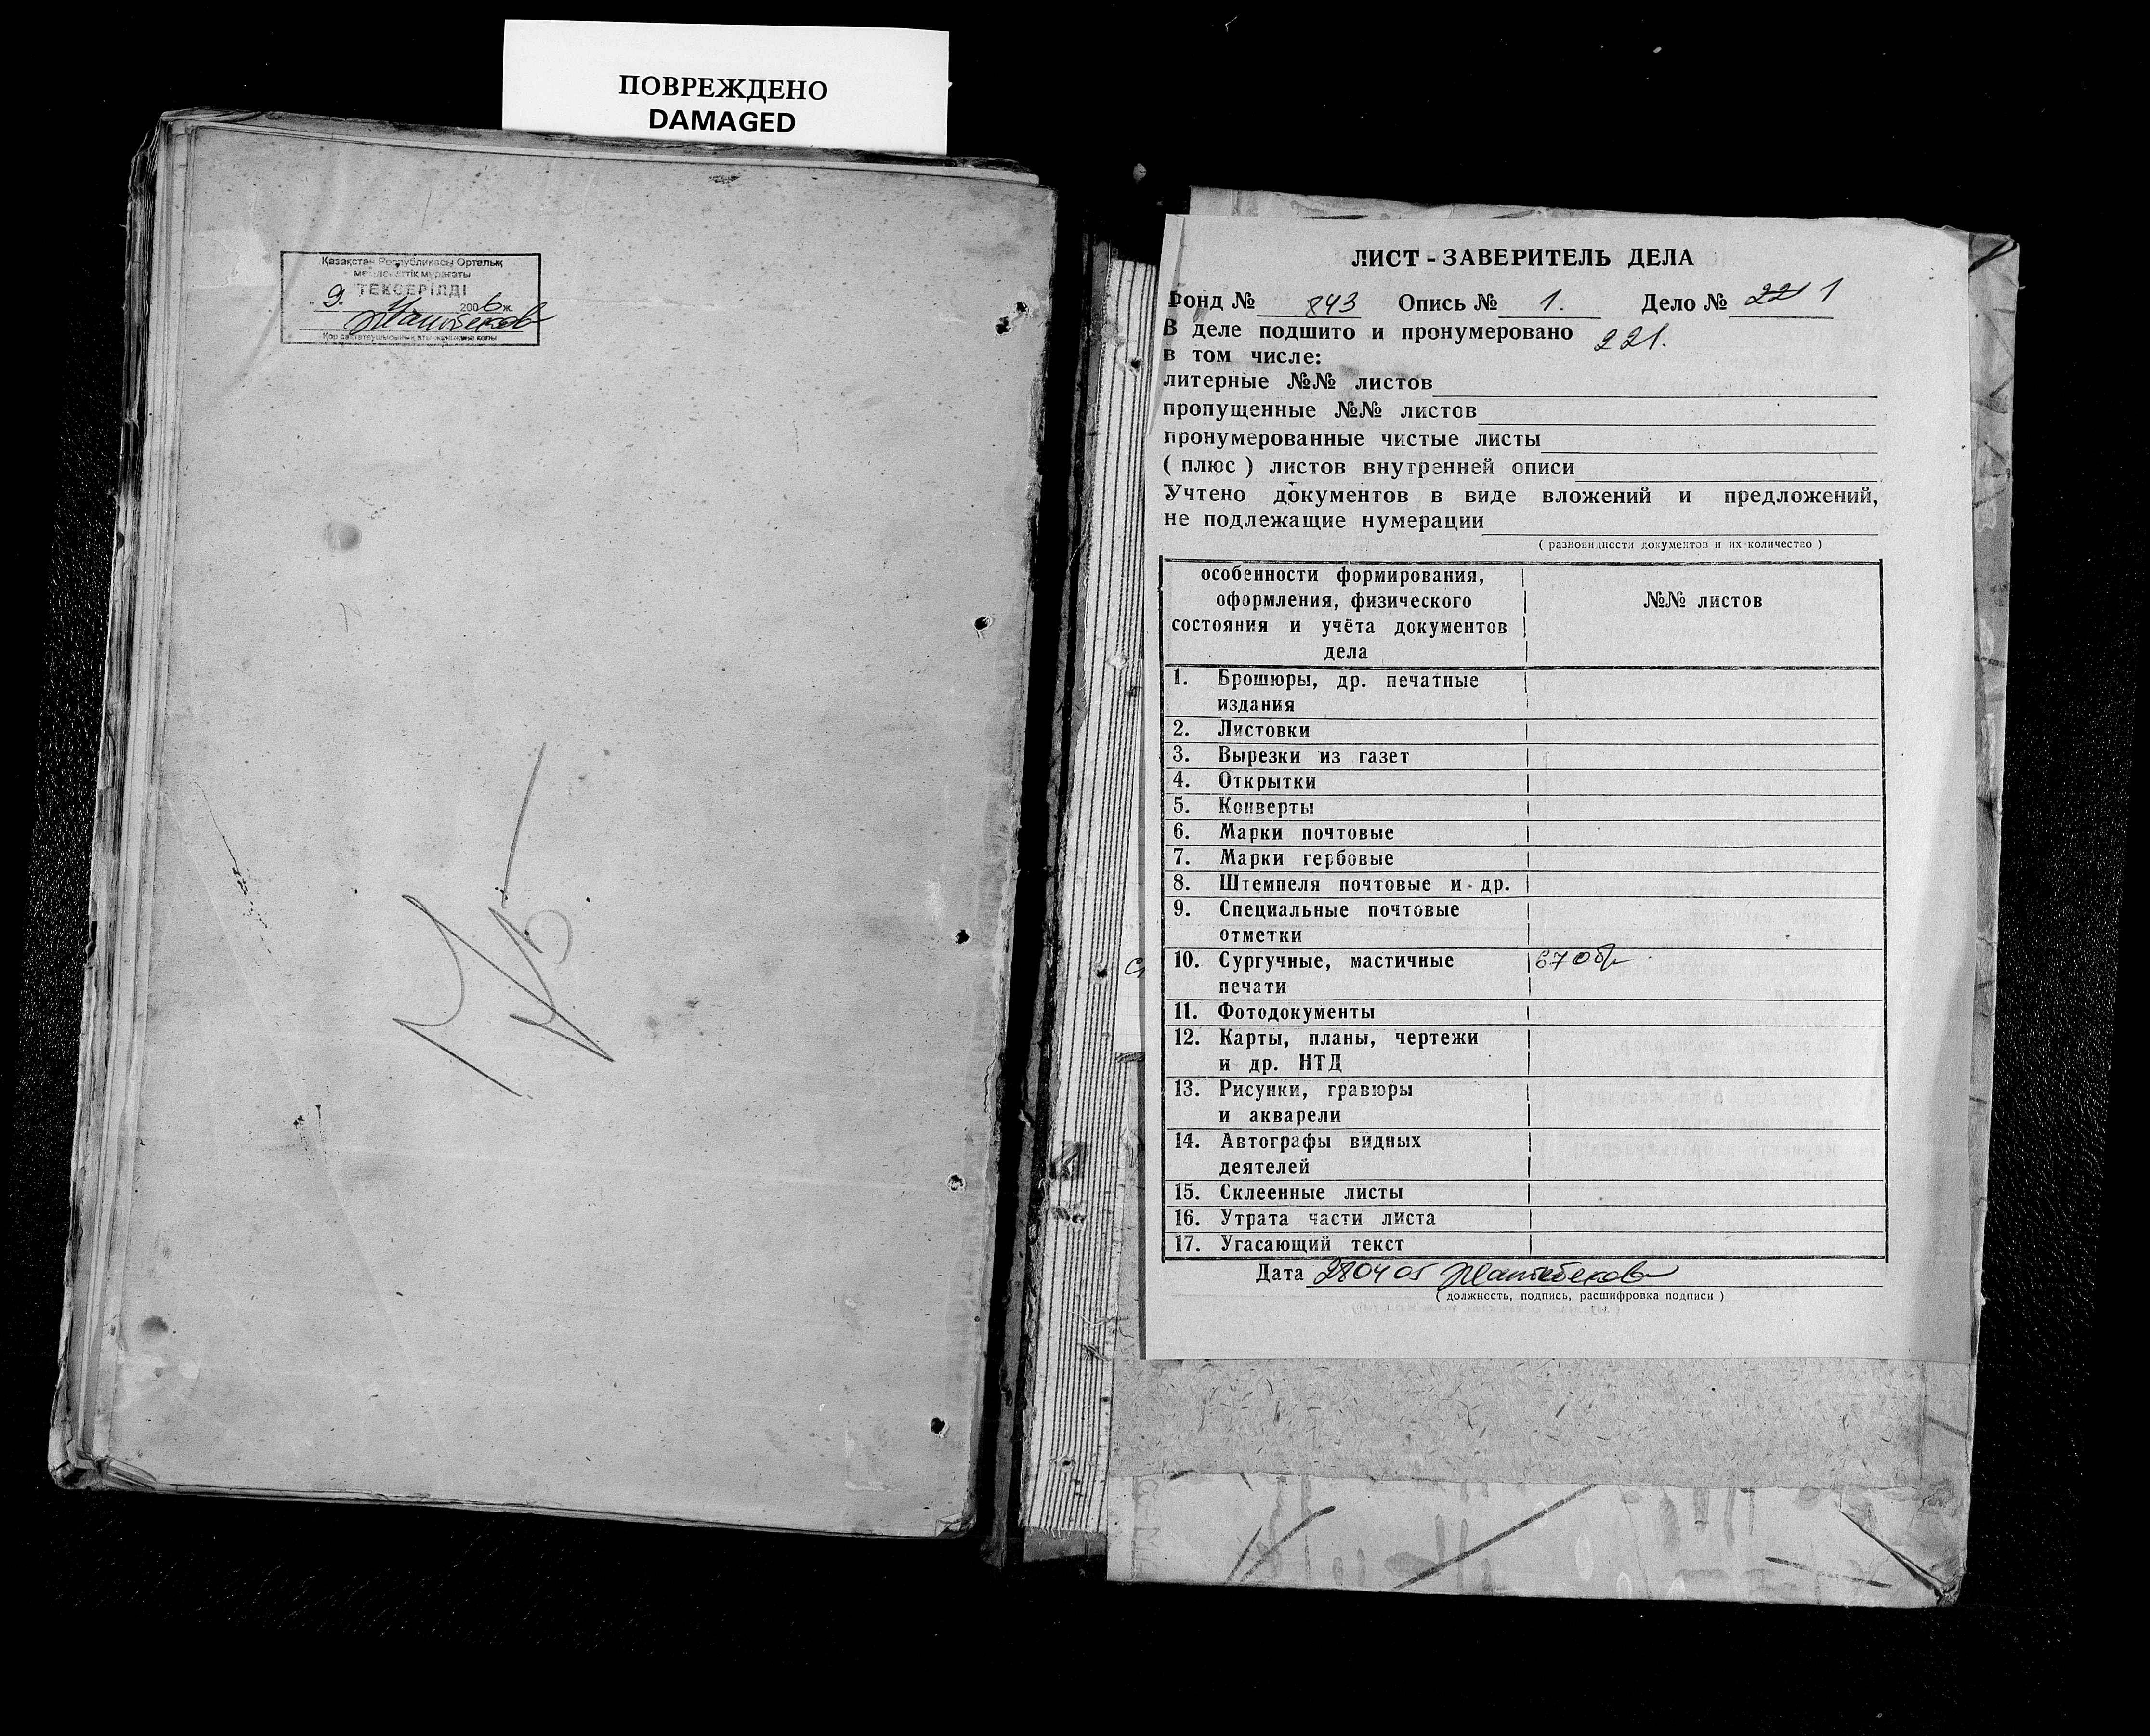 ПОВРЕЖДЕНО
DAMAGED
Қазақстан Республикасы Орталық
мемлекеттік мұрағаты
ТЕКСЕРІЛДІ
"9" 2006 ж.
ЛИСТ - ЗАВЕРИТЕЛЬ ДЕЛА
Фонд № 843 Опись № 1. Дело № 221 1
В деле подшито и пронумеровано 221.
в том числе:
литерные №№ листов
пропущенные №№ листов
пронумерованные чистые листы
( плюс ) листов внутренней описи
Учтено документов в виде вложений и предложений,
не подлежащие нумерации
( разновидности документов и их количество )
особенности формирования,
оформления, физического
состояния и учёта документов
дела
№№ листов
1. Брошюры, др. печатные
издания
2. Листовки
3. Вырезки из газет
4. Открытки
5. Конверты
6. Марки почтовые
7. Марки гербовые
8. Штемпеля почтовые и др.
9. Специальные почтовые
отметки
10. Сургучные, мастичные 67 об
печати
11. Фотодокументы
12. Карты, планы, чертежи
и др. НТД
13. Рисунки, гравюры
и акварели
14. Автографы видных
деятелей
15. Склеенные листы
16. Утрата части листа
17. Угасающий текст
Дата 280405
( должность, подпись, расшифровка подписи )